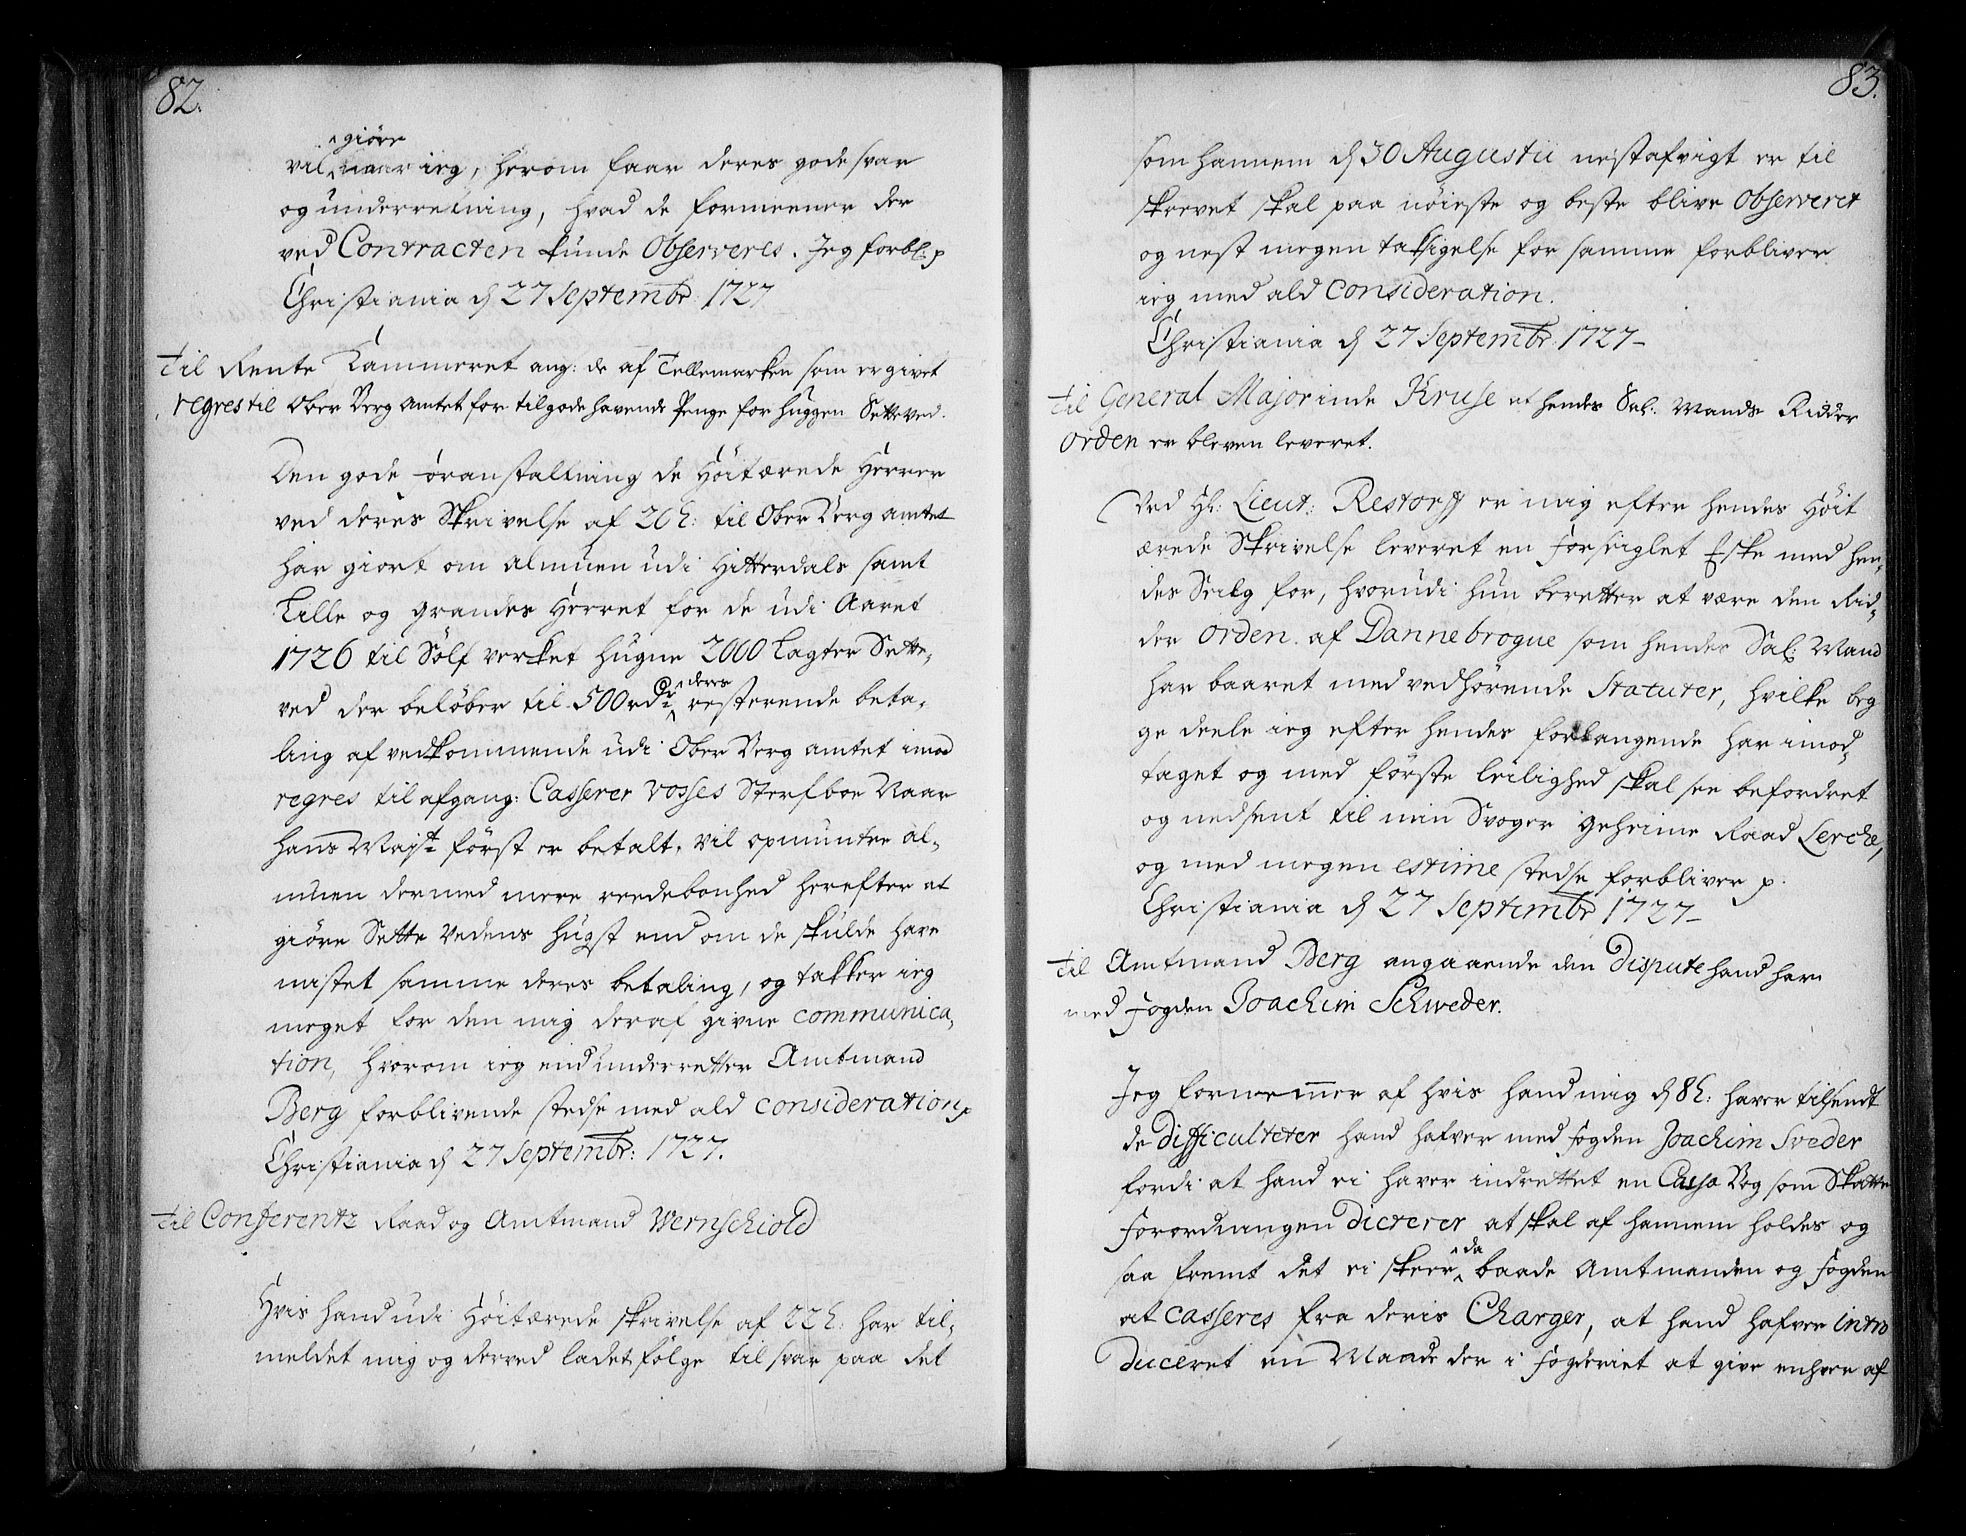 82.
giöre
vil naar ieg, herom faar deres gode svar
og underretning, hvad de formeener der
ved Contracten kunde Observeres. Jeg forbl: p
Christiania d 27 Septembr 1727
Til Rente Kammeret ang: de af Tellemarken som er givet
regres til Ober Berg Amtet for tilgode havende Penge for huggen Setteved.
Den gode foranstaltning de Höitærede Herrer
ved deres Skrivelse af 20 h: til Ober Berg Amtet
har giort om Almuen udi Hitterdals samt
Lille og Grandes Herret for de udi Aaret
1726 til Sölf verket hugne 2000 Lagter Sette,
deres
ved der belöber til 500 rdr resterende beta,
ling af vedkommende udi Ober Berg Amtet imod
regres til afgang: Casserer Vosses Sterfboe Naar
hans Mayt först er betalt, vil opmuntre al,
muen dermed mere reedebonhed herefter at
giöre Sette Vedens hugst end om de skulde have
mistet samme deres betaling, og takker ieg
meget for den mig deraf givne communica,
tion, hvorom ieg end underretter Amtmand
Berg forblivende stedse med ald consideration p
Christiania d 27 Septembr: 1727.
Til Conferentz Raad og Amtmand Wernschiold
Hvis hand udi Höitærede skrivelse af 22 h: har til,
meldet mig og derved ladet fölge til svar paa det
83.
som hannem d 30 Augustii nestafvigt er til
skrevet skal paa nöieste og beste blive Observeret
og nest megen taksigelse for samme forbliver
ieg med ald Consideration.
Christiania d 27 Septembr: 1727
Til General Majorinde Kruse at hendes Sal: Mands Ridder
Orden er bleven leveret.
Ved Hr: Lieut: Restorff er mig efter hendes Höit
ærede Skrivelse leveret en forseiglet Eske med hen,
des Seilg for, hvorudi hun beretter at være den Rid,
der Orden af Dannebrogue som hendes Sal: Mand
har baaret med vedhörende Statuter, hvilke beg
ge deele ieg efter hendes forlangende har imod,
taget og med förste leilighed skal see befordret
og nedsent til min Svoger Geheime Raad Lerche,
og med megen estime stedse forbliver p.
Christiania d 27 Septembr 1727
Til Amtmand Berg angaaende den Dispute hand har
med fogden Joachim Schweder.
Jeg fornemmer af hvis hand mig d 8 h: haver tilsendt
de difficulteter hand hafver med fogden Joachim Sveder
fordi at hand ei haver indrettet en Cassa Bog som Skatte
forordningen dicterer at skal af hannem holdes og
da
saa fremt det ei skeer baade Amtmanden og fogden
at casseres fra deris Charger, at hand hafver intro
duceret en Maade der i fogderiet at give enhver af